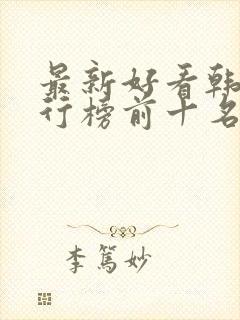 最新好看韩
行榜前十名
李篤妙